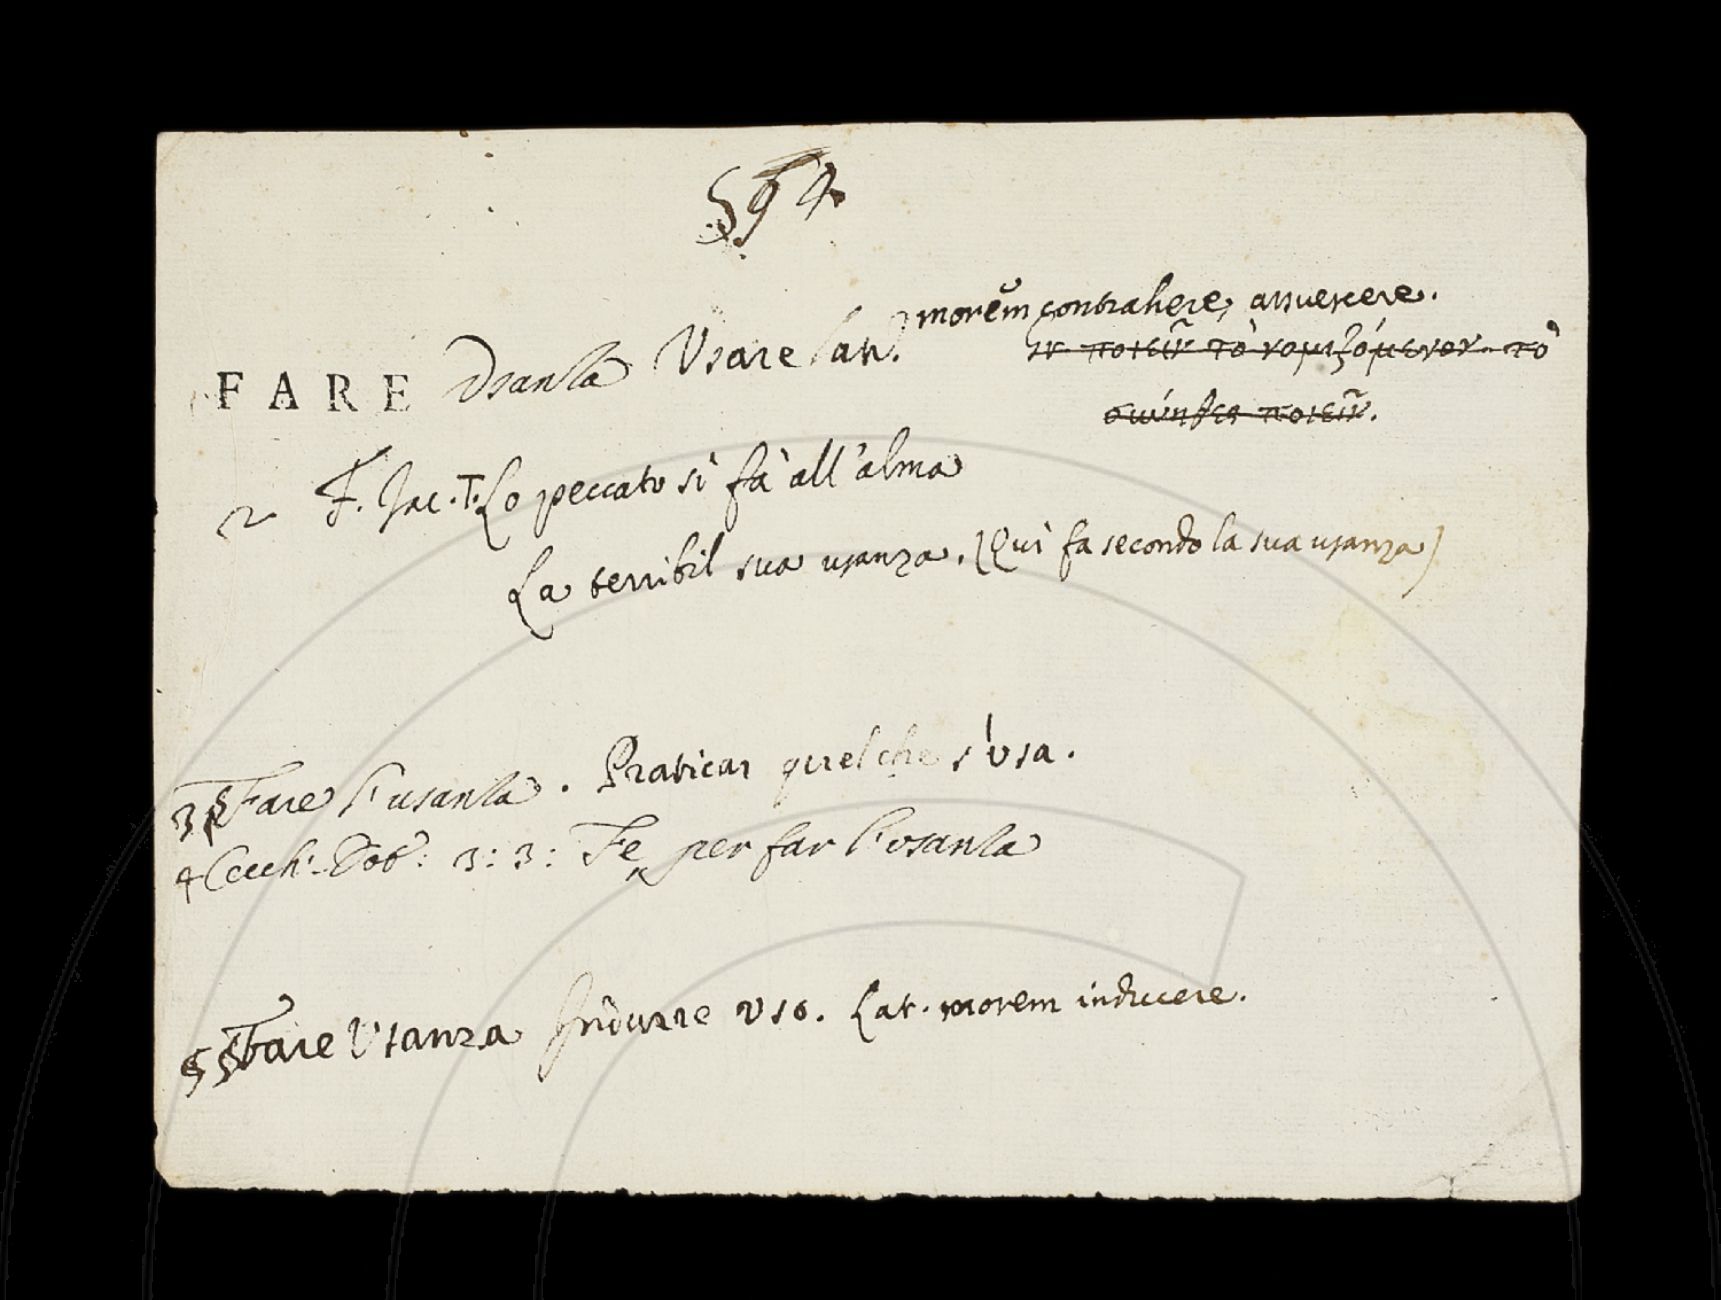 § 94
FARE Usanza Usare Lat. morem contrahere, assuescere.
gr. ποιεῖν τὸ νομιζόμενον. τὸ
σύνηθες ποιεῖν.
2 F. Jac. T. Lo peccato sì fà all'alma
La terribil sua usanza. (Quì fa secondo la sua usanza)
3 § Fare l'usanza. Praticar quel che s'usa.
4 Cecch: Dot: 3: 3: Fe, per far l'usanza
5 § Fare Usanza Indurre uso. Lat. morem inducere.